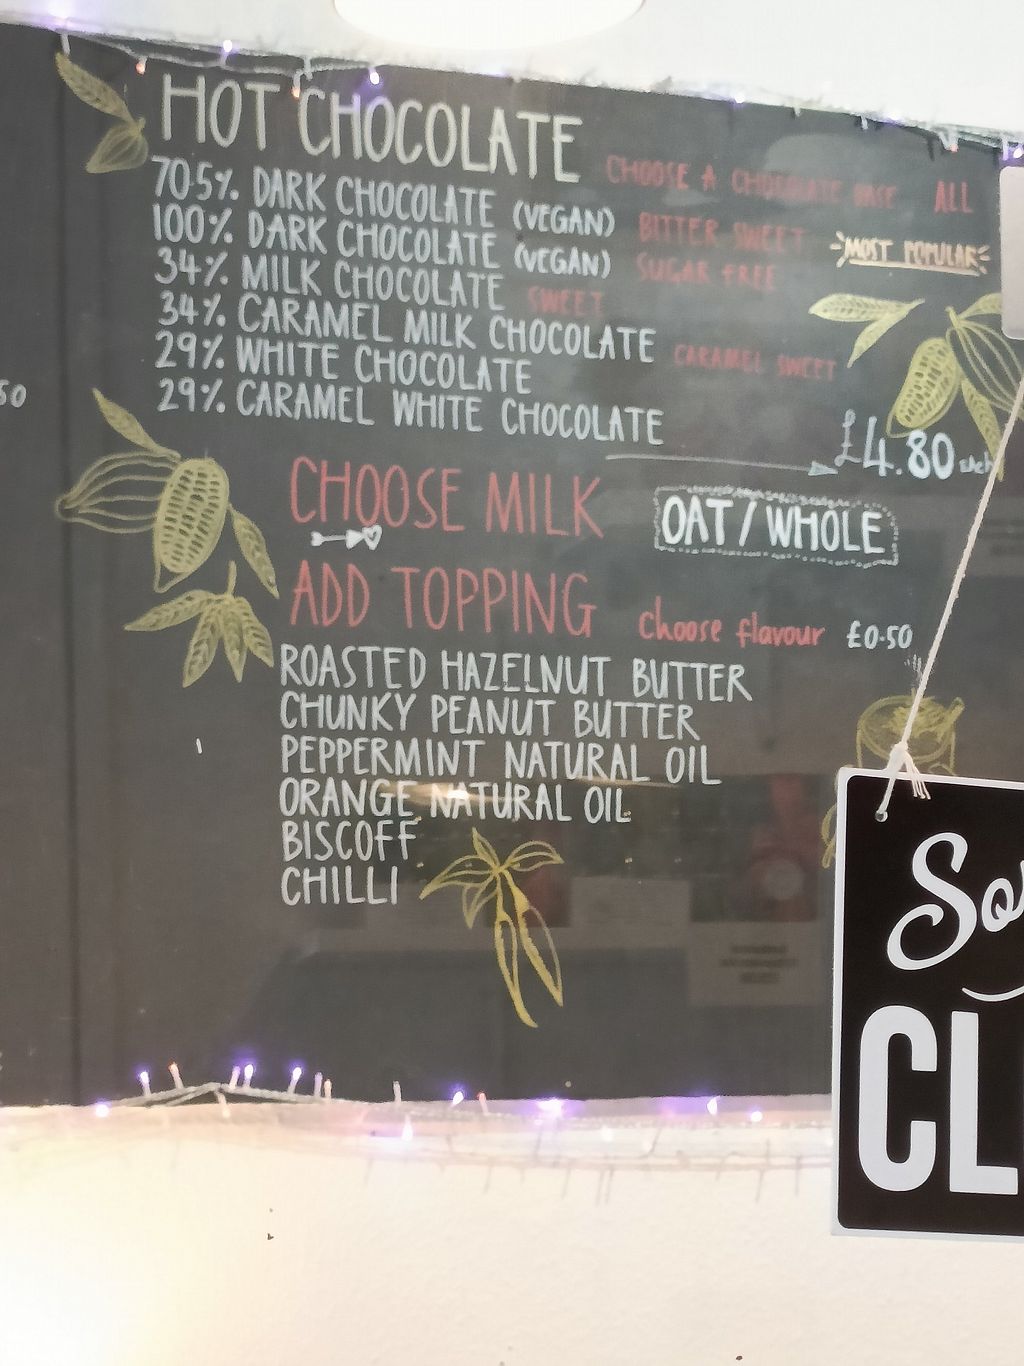 HOT CHOCOLATE CHOOSE A CHOCOLATE BASE ALL
70.5% DARK CHOCOLATE (VEGAN) BITTER SWEET MOST POPULAR
100% DARK CHOCOLATE (VEGAN) SUGAR FREE
34% MILK CHOCOLATE SWEET
34% CARAMEL MILK CHOCOLATE CARAMEL SWEET
29% WHITE CHOCOLATE
29% CARAMEL WHITE CHOCOLATE
£4.80 each
50
CHOOSE MILK OAT / WHOLE
ADD TOPPING choose flavour £0.50
ROASTED HAZELNUT BUTTER
CHUNKY PEANUT BUTTER
PEPPERMINT NATURAL OIL
ORANGE NATURAL OIL
BISCOFF
CHILLI
So
CL